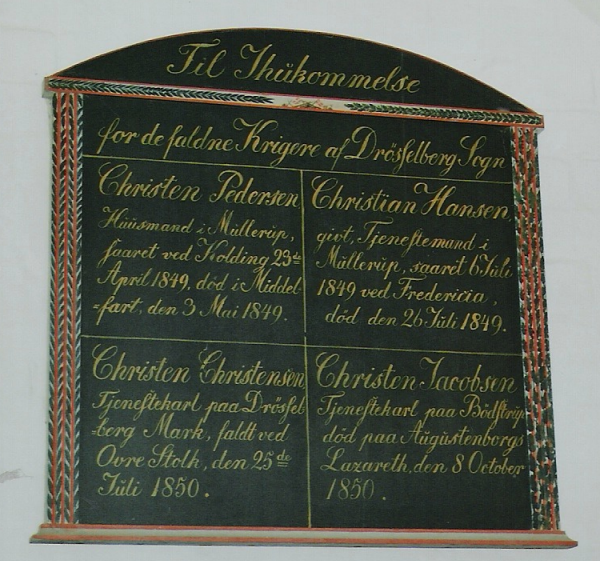 Til Ihükommelse
for de faldne Krigere af Drösselberg Sogn
Christen Pedersen
Hüüsmand i Müllerüp,
saaret ved Kolding 23de
April 1849, död i Middel
=fart, den 3 Mai 1849.
Christian Hansen,
givt, Tjenestemand i
Müllerüp, saaret 6 Jüli
1849 ved Fredericia,
död den 26 Jüli 1849.
Christen Christensen
Tjenestekarl paa Drössel
=berg Mark, faldt ved
Ovre Stolk, den 25de
Jüli 1850.
Christen Jacobsen
Tjenestekarl paa Bödstrüp
död paa Aügüstenborgs
Lazareth, den 8 October
1850.